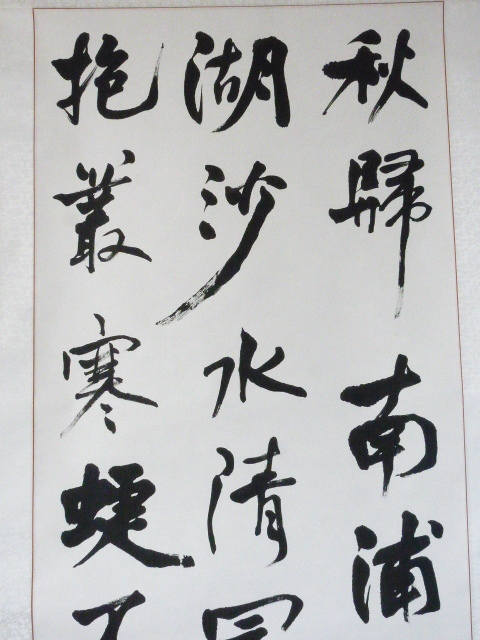 秋歸南浦
湖沙水清
抱叢寒蜨